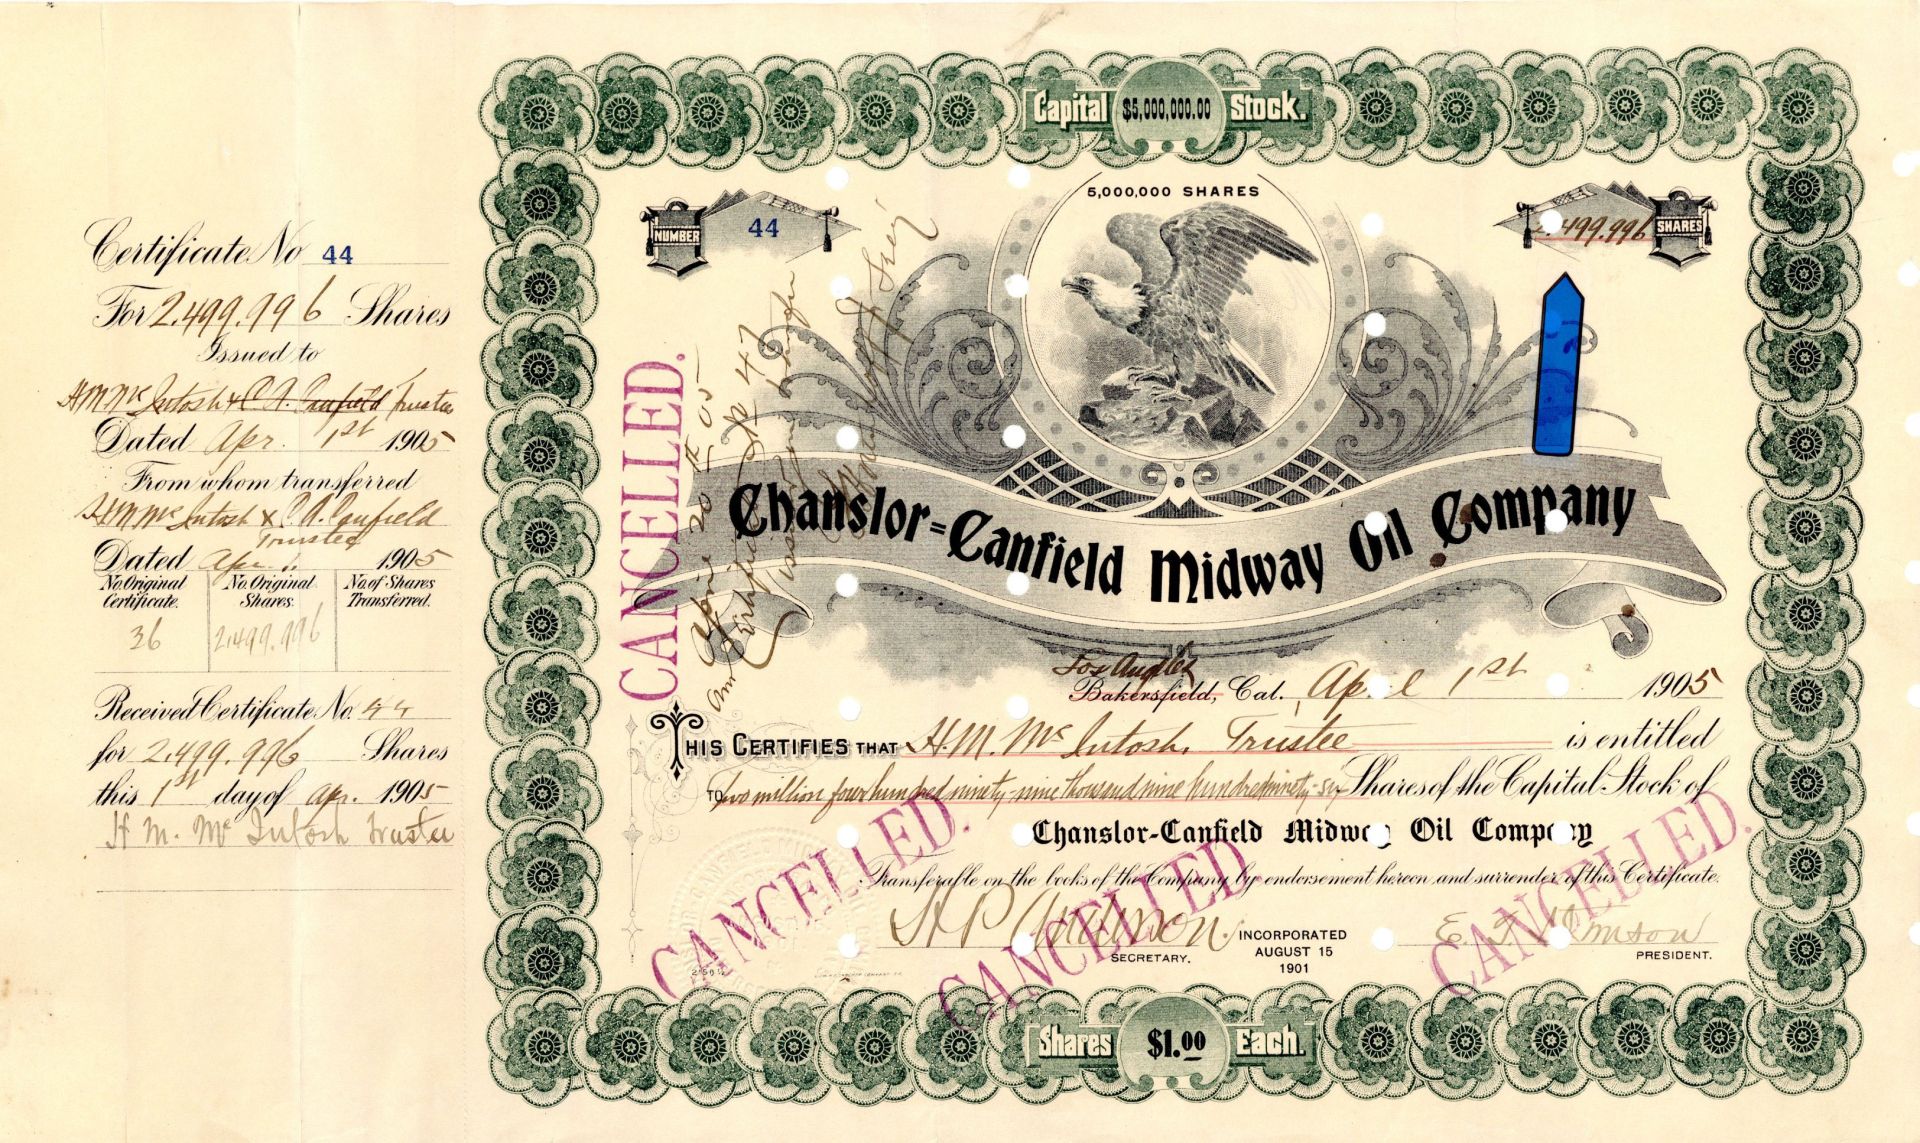 Certificate No 44
For 2.499.996 Shares
Issued to
H M Mc Intosh & C. A. Canfield Trustee
Dated Apr. 1st 1905
From whom transferred
H M Mc Intosh & C. A. Canfield
Trustee
Dated Apr. 1. 1905
No. Original Certificate. No. Original Shares. No. of Shares Transferred.
36 2.499.996
Received Certificate No. 44
for 2.499.996 Shares
this 1st day of Apr. 1905
H. M. Mc Intosh Trustee
Capital $5,000,000.00 Stock.
5,000,000 SHARES
NUMBER 44
2.499.996 SHARES
CANCELLED.
April 20th 05
No 47
Chanslor=Canfield Midway Oil Company
Los Angeles
Bakersfield, Cal., April 1st 1905
THIS CERTIFIES THAT H. M. Mc Intosh, Trustee is entitled
TO Two million four hundred ninety-nine thousand nine hundred ninety-six Shares of the Capital Stock of
Chanslor-Canfield Midway Oil Company
Transferable on the books of the Company by endorsement hereon and surrender of this Certificate.
CANCELLED.
CANCELLED.
CANCELLED.
H P Anderson
SECRETARY.
INCORPORATED
AUGUST 15
1901
PRESIDENT.
Shares $1.00 Each.